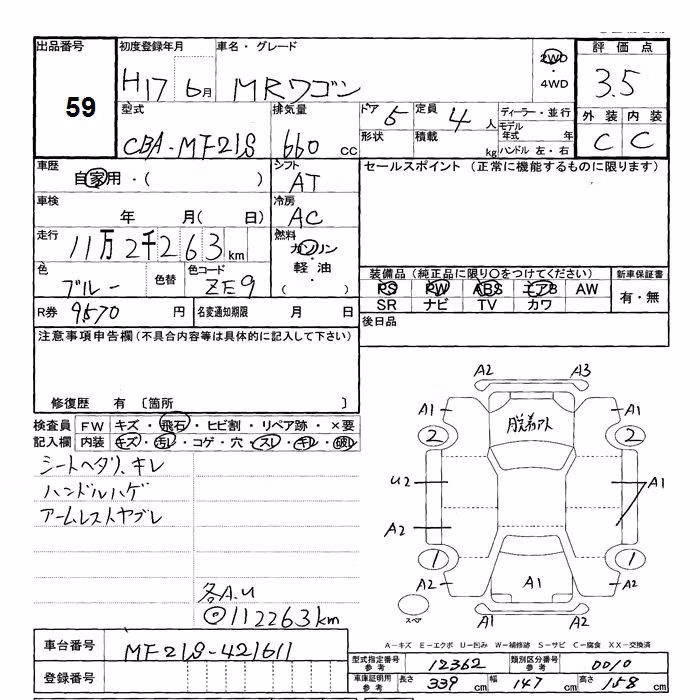 出品番号 初度登録年月 車名・グレード 評価点
59 H17 6月 MRワゴン 2WD・4WD 3.5
型式 排気量 ドア 5 定員 4人 ディーラー・並行 外装 内装
CBA-MF21S 660cc 形状 積載 kg モデル年式 年 C C
ハンドル 左・右
車歴 自家用・( ) シフト AT セールスポイント (正常に機能するものに限ります)
車検 年 月( 日) 冷房 AC
走行 11万2千263km 燃料 ガソリン・軽油( )
色 ブルー 色替 色コード ZE9 装備品(純正品に限り○をつけてください) 新車保証書
PS PW ABS エアB AW 有・無
SR ナビ TV カワ
R券 9570円 名変通知期限 月 日 後日品
注意事項申告欄(不具合内容等は具体的に記入して下さい)
修復歴 有 〔箇所 〕
検査員 FW キズ・飛石・ヒビ割・リペア跡・×要
記入欄 内装 キズ・汚レ・コゲ・穴・スレ・キレ・破レ
シートヘタリ、キレ
ハンドルハゲ
アームレストヤブレ
各A.U
◎112263km
A2 A3
A1 A1
2 脱着アト 2
U2 A1
A2
1 1
A2 A1 A2
スペア A1 A2
A-キズ E-エクボ U-凹み W-補修跡 S-サビ C-腐食 XX-交換済
車台番号 MF21S-421611 型式指定番号 参考 12362 類別区分番号 参考 0010
登録番号 車庫証明用 参考 長さ 339cm 幅 147cm 高さ 158cm